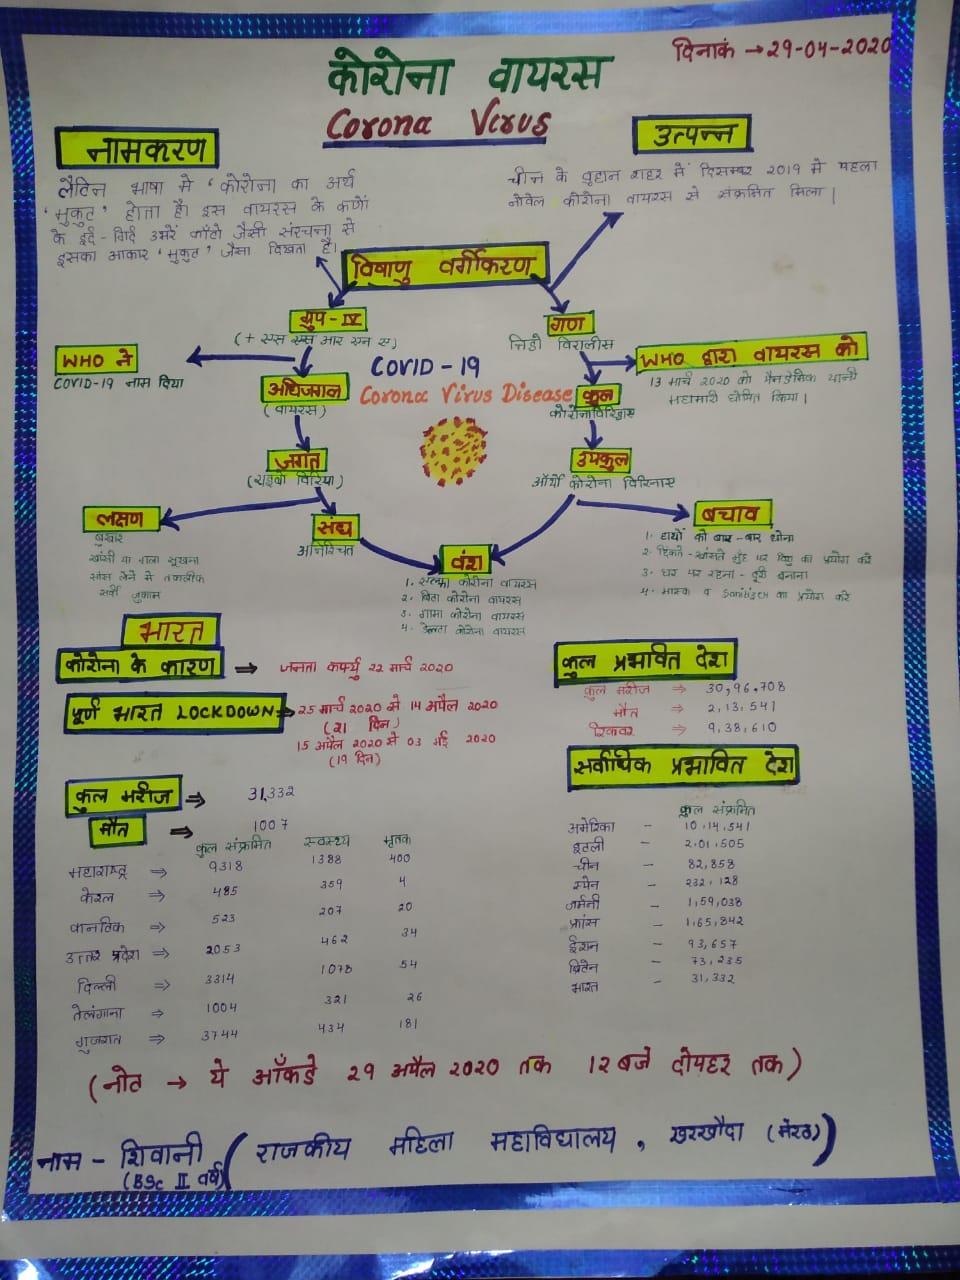 दिनाकं → 29-04-2020
कोरोना वायरस
Corona Virus
नामकरण
लैटिन भाषा मे 'कोरोना का अर्थ
'मुकुट' होता है। इस वायरस के कणों
के इर्द-गिर्द उभरें काँटो जैसी संरचना से
इसका आकार 'मुकुट' जैसा दिखता है।
उत्पन्न
चीन के वुहान शहर में दिसम्बर 2019 मे पहला
नोवेल कोरोना वायरस से संक्रमित मिला।
विषाणु वर्गीकरण
ग्रुप-IV
(+ एस एस आर एन ए)
गण
निडो विरालीस
WHO ने
COVID-19 नाम दिया
COVID-19
Corona Virus Disease
WHO द्वारा वायरस को
13 मार्च 2020 को पैनडेमिक यानी
महामारी घोषित किया।
अधिजगत
(वायरस)
कुल
कोरोनाविरिडाए
जगत
(राइबो विरिया)
उपकुल
ऑर्थो कोरोना विरिनाए
लक्षण
बुखार
खांसी या गला सूखना
सांस लेने मे तकलीफ
सर्दी जुकाम
संघ
अनिश्चित
वंश
1. अल्फा कोरोना वायरस
2. बिटा कोरोना वायरस
3. गामा कोरोना वायरस
4. डेल्टा कोरोना वायरस
बचाव
1. हाथों को बार-बार धोना
2. छिकते-खांसते मुँह पर टिशु का प्रयोग करे
3. घर पर रहना - दूरी बनाना
4. मास्क व Sanitizer का प्रयोग करे
भारत
कोरोना के कारण ⇒ जनता कर्फ्यु 22 मार्च 2020
पूर्ण भारत LOCKDOWN → 25 मार्च 2020 से 14 अप्रैल 2020
(21 दिन)
15 अप्रैल 2020 से 03 मई 2020
(19 दिन)
कुल प्रभावित देश
कुल मरीज ⇒ 30,96,708
मौत ⇒ 2,13,541
रिकवर ⇒ 9,38,610
कुल मरीज ⇒ 31,332
मौत ⇒ 1007
कुल संक्रमित स्वस्थ्य मृतक
महाराष्ट्र ⇒ 9318 1388 400
केरल ⇒ 485 359 4
कर्नाटक ⇒ 523 207 20
उत्तर प्रदेश ⇒ 2053 462 34
दिल्ली ⇒ 3314 1078 54
तेलंगाना ⇒ 1004 321 26
गुजरात ⇒ 3744 434 181
सर्वाधिक प्रभावित देश
कुल संक्रमित
अमेरिका - 10,14,541
इटली - 2,01,505
चीन - 82,858
स्पेन - 232,128
जर्मनी - 1,59,038
फ्रांस - 1,65,842
ईरान - 93,657
ब्रिटेन - 73,235
भारत - 31,332
(नोट → ये आँकडे 29 अप्रैल 2020 तक 12 बजे दोपहर तक)
नाम - शिवानी (राजकीय महिला महाविद्यालय, खरखौदा (मेरठ))
(BSc II वर्ष)